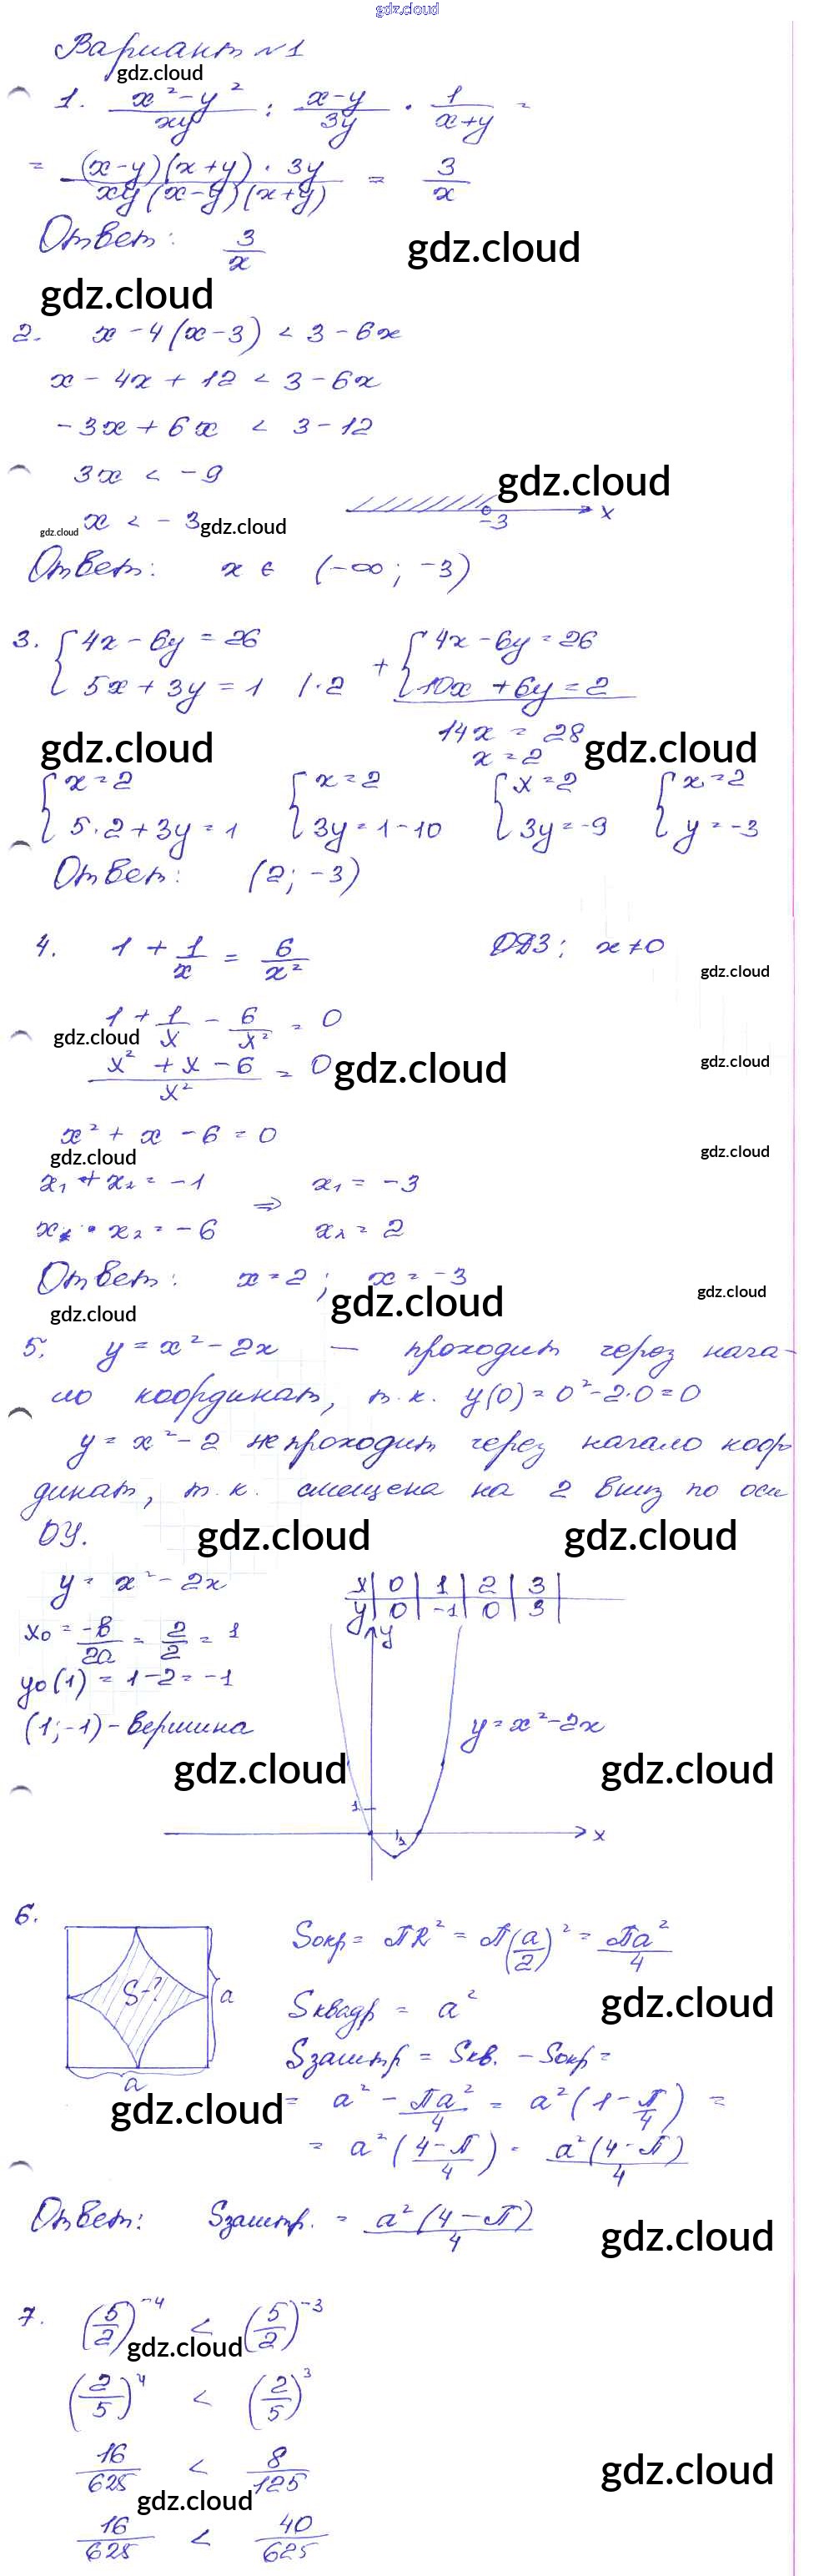 gdz.cloud
Вариант №1
gdz.cloud
1. (x² - y²)/(xy) : (x-y)/(3y) · 1/(x+y) =
= ((x-y)(x+y) · 3y)/(xy(x-y)(x+y)) = 3/x
Ответ: 3/x
gdz.cloud
gdz.cloud
2. x - 4(x-3) < 3 - 6x
x - 4x + 12 < 3 - 6x
-3x + 6x < 3 - 12
3x < -9
gdz.cloud
x < -3
-3 x
gdz.cloud gdz.cloud
Ответ: x ∈ (-∞; -3)
3. { 4x - 6y = 26
5x + 3y = 1 | ·2
+ { 4x - 6y = 26
10x + 6y = 2
14x = 28
x = 2
gdz.cloud gdz.cloud
{ x = 2 { x = 2 { x = 2 { x = 2
5·2 + 3y = 1 3y = 1 - 10 3y = -9 y = -3
Ответ: (2; -3)
4. 1 + 1/x = 6/x² ОДЗ: x ≠ 0
gdz.cloud
1 + 1/x - 6/x² = 0
gdz.cloud
(x² + x - 6)/x² = 0
gdz.cloud gdz.cloud
x² + x - 6 = 0
gdz.cloud gdz.cloud
x₁ + x₂ = -1 ⇒ x₁ = -3
x₁ · x₂ = -6 x₂ = 2
Ответ: x = 2; x = -3
gdz.cloud gdz.cloud gdz.cloud
5. y = x² - 2x — проходит через нача-
ло координат, т.к. y(0) = 0² - 2·0 = 0
y = x² - 2 не проходит через начало коор
динат, т.к. смещена на 2 вниз по оси
OY.
gdz.cloud gdz.cloud
y = x² - 2x
x 0 1 2 3
y 0 -1 0 3
x₀ = -b/2a = 2/2 = 1
y₀(1) = 1 - 2 = -1
(1; -1) - вершина
y
y = x² - 2x
gdz.cloud gdz.cloud
1
1 x
6.
S-?
a
a
Sокр = πR² = π(a/2)² = πa²/4
Sквадр = a²
gdz.cloud
Sзаштр = Sкв. - Sокр =
= a² - πa²/4 = a²(1 - π/4) =
gdz.cloud
= a²((4-π)/4) = a²(4-π)/4
Ответ: Sзаштр. = a²(4-π)/4
gdz.cloud
7. (5/2)⁻⁴ < (5/2)⁻³
gdz.cloud
(2/5)⁴ < (2/5)³
16/625 < 8/125
gdz.cloud
gdz.cloud
16/625 < 40/625